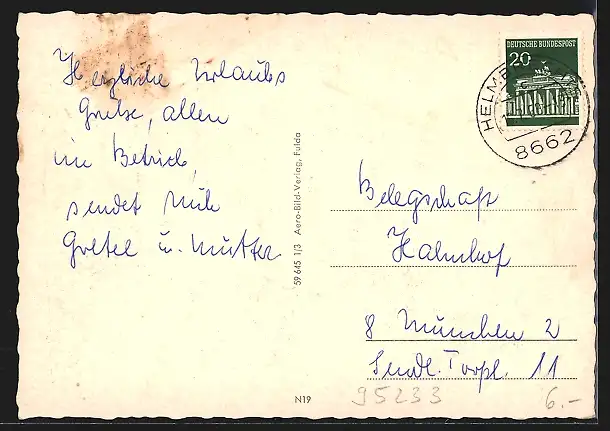 Herzliche Urlaubs
Grüße, allen
im Betrieb,
sendet
Gretel u. Mutter
59 645 1/3 Aero-Bild-Verlag, Fulda
DEUTSCHE BUNDESPOST
20
HELMB
8662
Belegschaft
8 München 2
Sendl. Torpl. 11
95233
6.-
N19